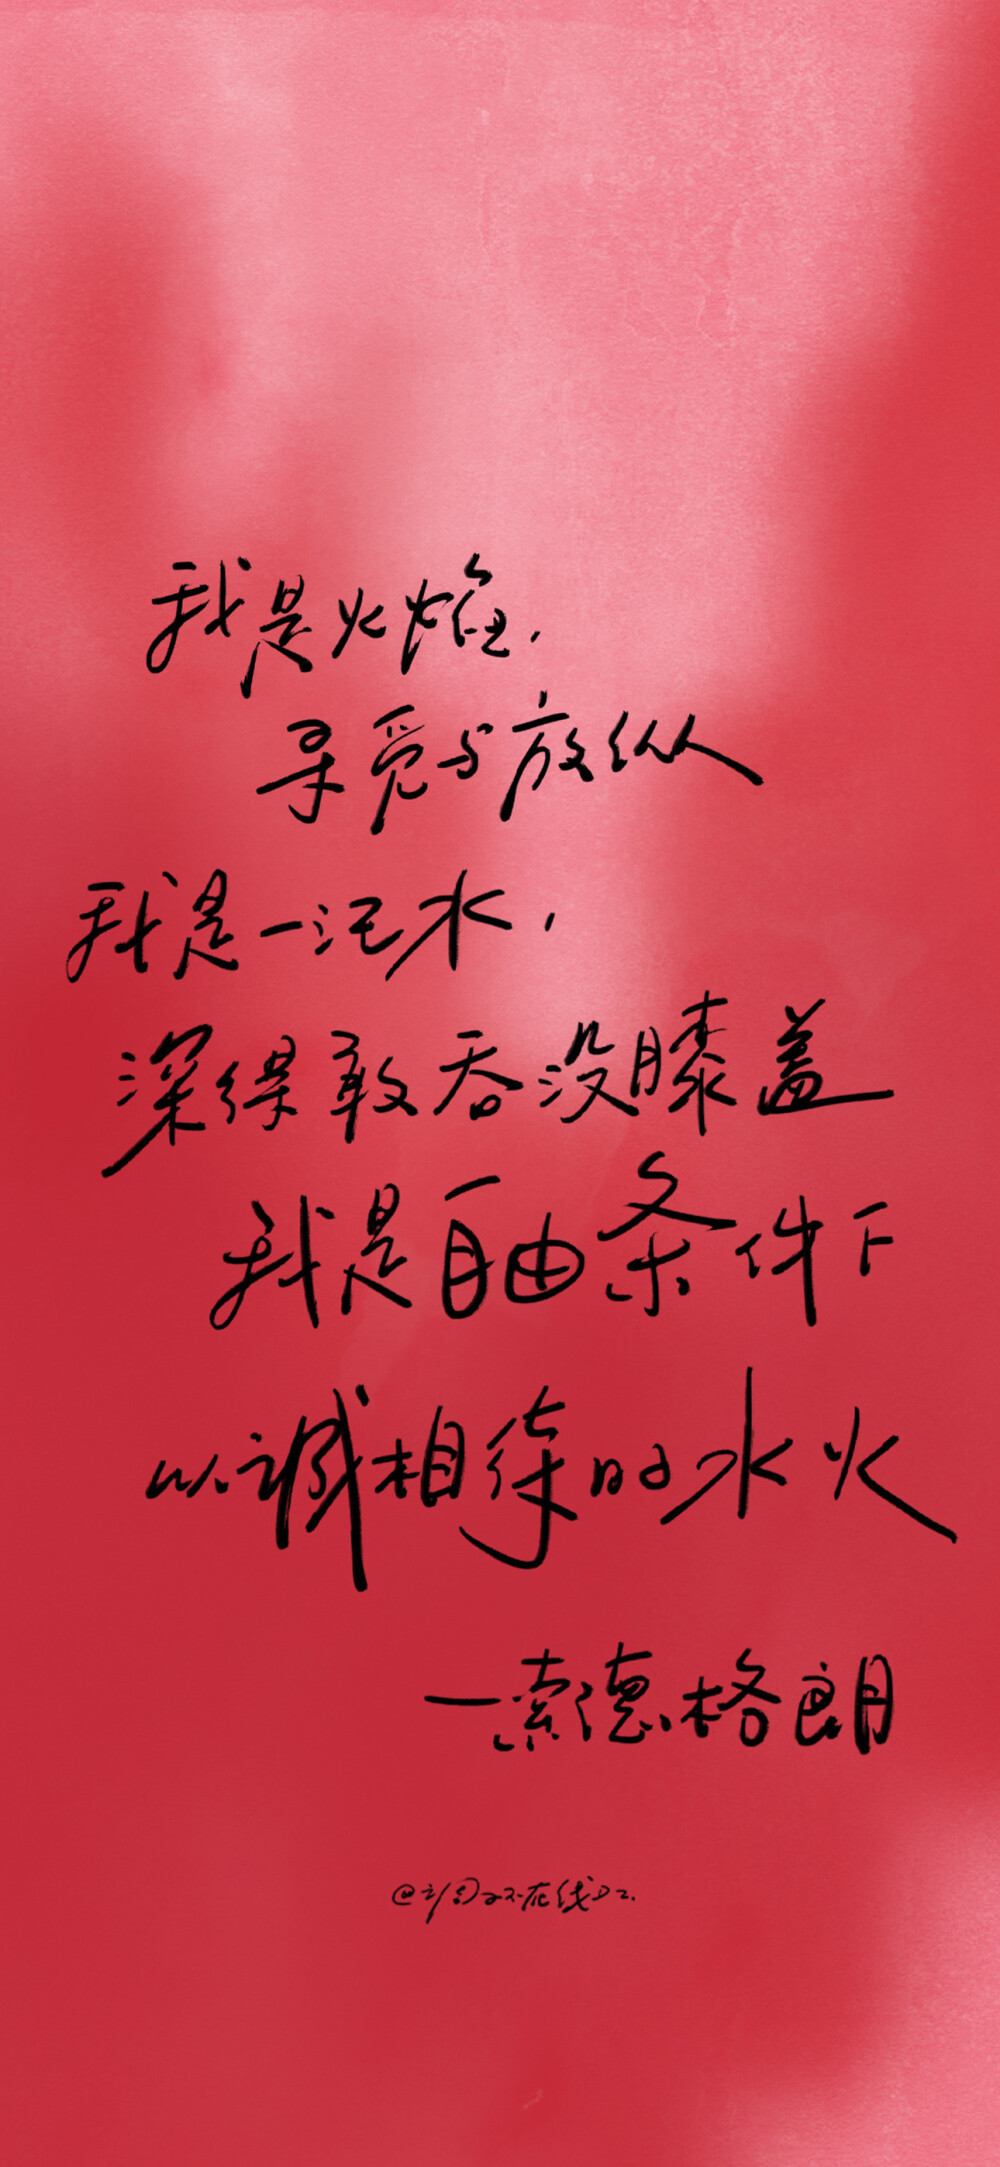 我是火焰，
寻觅与放纵
我是一汪水，
深得敢吞没膝盖
我是自由条件下
以诚相待的水火
—索德格朗